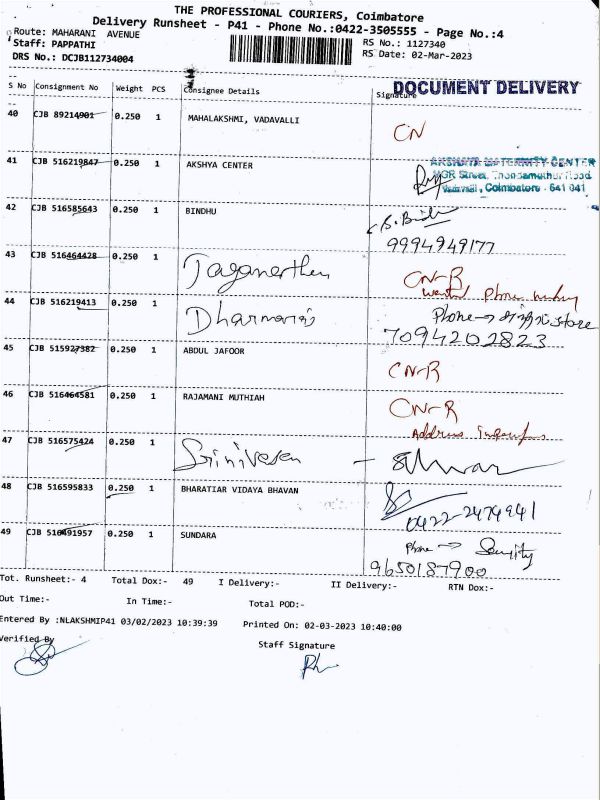 THE PROFESSIONAL COURIERS, Coimbatore
Delivery Runsheet - P41 - Phone No.:0422-3505555 - Page No.:4
Route: MAHARANI AVENUE
RS No.: 1127340
Staff: PAPPATHI
RS Date: 02-Mar-2023
DRS No.: DCJB112734004
DOCUMENT DELIVERY
S No Consignment No Weight PCS Consignee Details Signature
40 CJB 89214901 0.250 1 MAHALAKSHMI, VADAVALLI CN
41 CJB 516219847 0.250 1 AKSHYA CENTER
AKSHAYA MATERNITY CENTER
MGR Street, Thondamuthur Road
Vadavalli, Coimbatore - 641 041
42 CJB 516585643 0.250 1 BINDHU
9994949177
43 CJB 516464428 0.250 1 Jaganathan CN-R
Phone
44 CJB 516219413 0.250 1 Dharmaraj Phone → store
7094202823
45 CJB 515927382 0.250 1 ABDUL JAFOOR CN-R
46 CJB 516464581 0.250 1 RAJAMANI MUTHIAH CN-R
Address
47 CJB 516575424 0.250 1 Srinivasan
48 CJB 516595833 0.250 1 BHARATIAR VIDAYA BHAVAN
0422-2474941
49 CJB 516491957 0.250 1 SUNDARA Phone →
9650187900
Tot. Runsheet:- 4 Total Dox:- 49 I Delivery:- II Delivery:- RTN Dox:-
Out Time:- In Time:- Total POD:-
Entered By :NLAKSHMIP41 03/02/2023 10:39:39 Printed On: 02-03-2023 10:40:00
Verified By Staff Signature